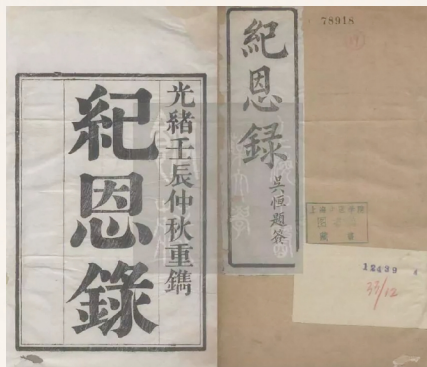 光緒壬辰仲秋重鐫
紀恩錄
紀恩録
吳恒題签
78918
12439
33/12